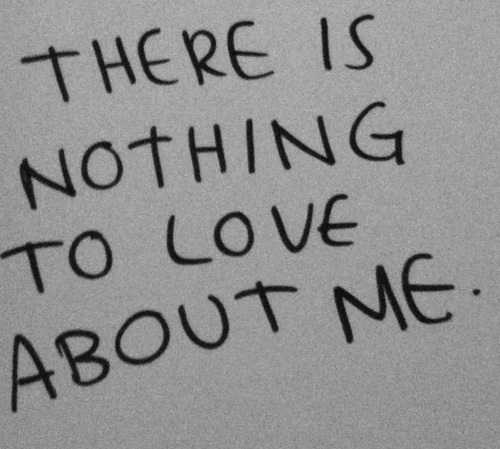 THERE IS
NOTHING
TO LOVE
ABOUT ME.